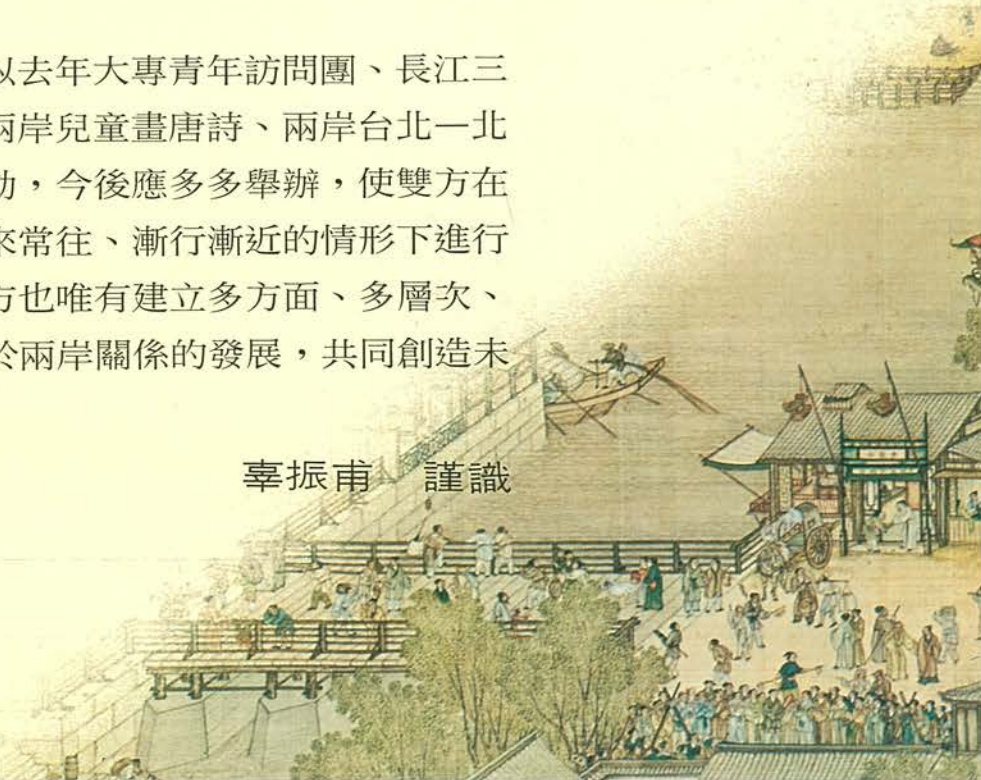 以去年大專青年訪問團、長江三
兩岸兒童畫唐詩、兩岸台北—北
動，今後應多多舉辦，使雙方在
來常往、漸行漸近的情形下進行
方也唯有建立多方面、多層次、
於兩岸關係的發展，共同創造未
辜振甫　謹識